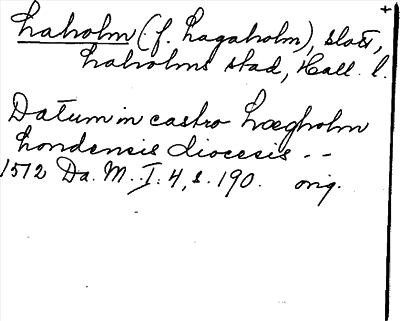 Laholm (f. Lagaholm), slott,
Laholms stad, Hall. l.
Datum in castro Lægholm
Londensis diocesis --
1512 Da. M. I: 4, s. 190. orig.